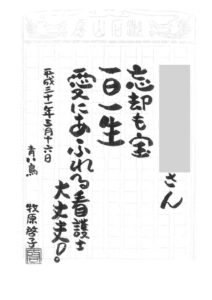 さん
忘却も宝
一日一生
愛にあふれる看護士
大丈夫。
平成三十一年三月十六日
青い鳥
牧原啓子